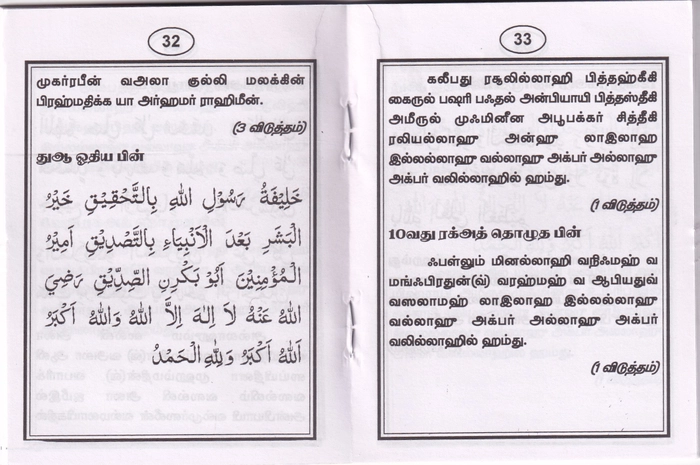 32
முகர்ரபீன் வஅலா குல்லி மலக்கின்
பிரஹ்மதிக்க யா அர்ஹமர் ராஹிமீன்.
(3 விடுத்தம்)
துஆ ஓதிய பின்
خَلِيْفَةُ رَسُوْلِ اللهِ بِالتَّحْقِيْقِ خَيْرُ
الْبَشَرِ بَعْدَ الْاَنْبِيَاءِ بِالتَّصْدِيْقِ اَمِيْرُ
الْمُؤْمِنِيْنَ اَبُوْ بَكْرِنِ الصِّدِّيْقِ رَضِيَ
اللهُ عَنْهُ لَا اِلٰهَ اِلَّا اللهُ وَاللهُ اَكْبَرُ
اَللهُ اَكْبَرُ وَلِلّٰهِ الْحَمْدُ
33
கலீபது ரசூலில்லாஹி பித்தஹ்கீகி
கைருல் பஷரி பஃதல் அன்பியாயி பித்தஸ்தீகி
அமீருல் முஃமினீன அபூபக்கர் சித்தீகி
ரலியல்லாஹு அன்ஹு லாஇலாஹ
இல்லல்லாஹு வல்லாஹு அக்பர் அல்லாஹு
அக்பர் வலில்லாஹில் ஹம்து.
(1 விடுத்தம்)
10வது ரக்அத் தொழுத பின்
ஃபள்லும் மினல்லாஹி வநிஃமஹ் வ
மங்ஃபிரதுன்(வ்) வரஹ்மஹ் வ ஆபியதுவ்
வஸலாமஹ் லாஇலாஹ இல்லல்லாஹு
வல்லாஹு அக்பர் அல்லாஹு அக்பர்
வலில்லாஹில் ஹம்து.
(1 விடுத்தம்)